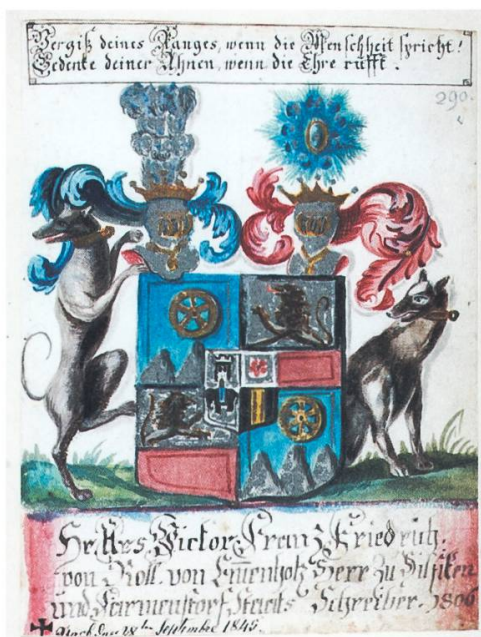 Vergiß deines Ranges, wenn die Menschheit spricht!
Gedenke deiner Ahnen, wenn die Ehre rufft.
290.
Hr. Urs. Victor Franz Friedrich.
von Roll. von Emenholz Herr zu Hilfiken
und Sarmenstorf Staats Schreiber. 1806
✠ Nach den 28ten September 1845.